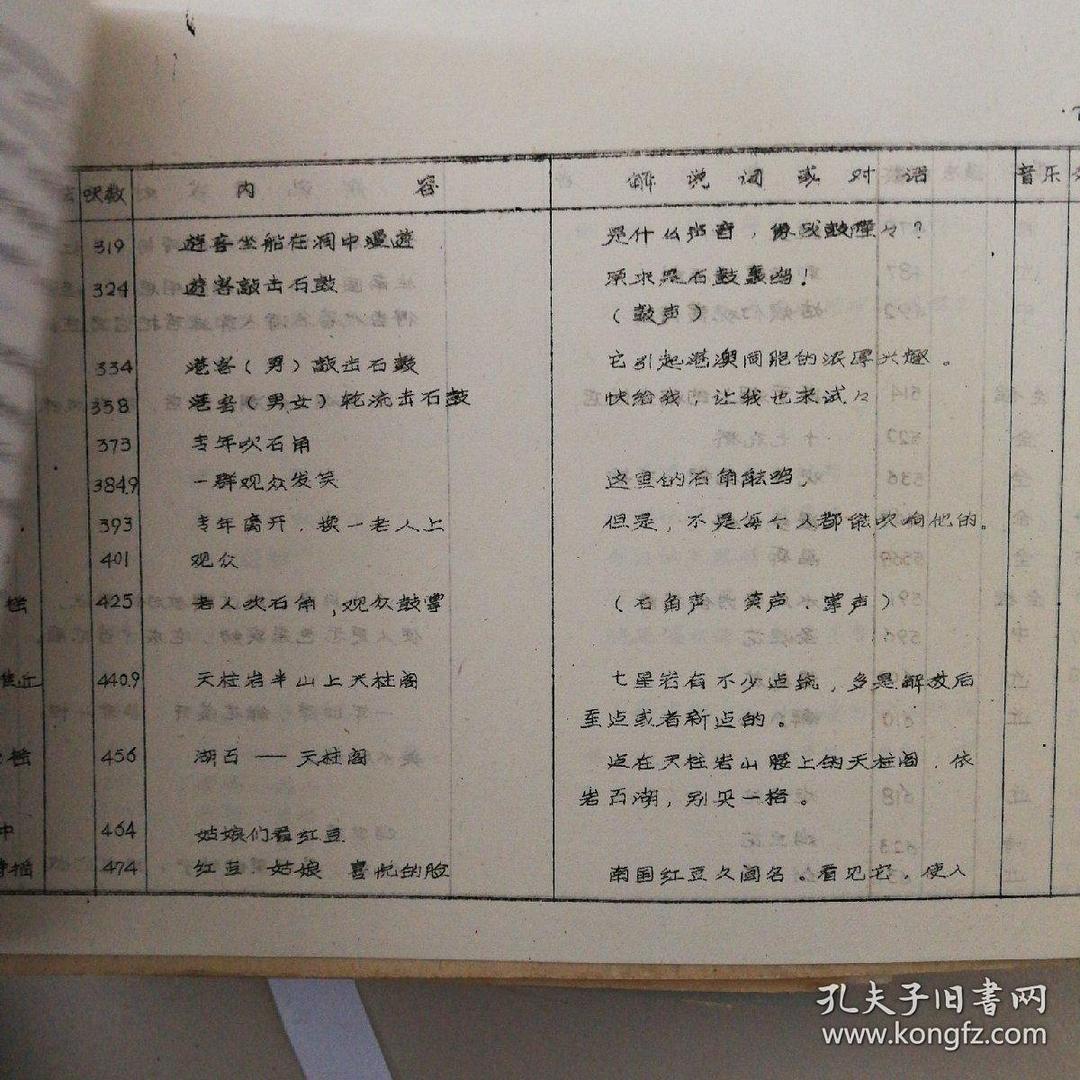 呎数 内 容 解说词或对话 音乐
319 遊客坐船在洞中漫遊 是什么声音，像战鼓隆々？
324 遊客敲击石鼓 原来是石鼓轰鸣！
（鼓声）
334 港客（男）敲击石鼓 它引起港澳同胞的浓厚兴趣。
358 港客（男女）轮流击石鼓 快给我，让我也来试々
373 青年吹石角
384.9 一群观众发笑 这里的石角能鸣，
393 青年离开，换一老人上 但是，不是每个人都能吹响他的。
401 观众
摇 425 老人吹石角，观众鼓掌 （石角声 笑声、掌声）
推近 440.9 天柱岩半山上天柱阁 七星岩有不少建筑，多是解放后
重建或者新建的。
摇 456 湖石 —— 天柱阁 建在天柱岩山腰上的天柱阁，依
岩面湖，别具一格。
中 464 姑娘们看红豆
特摇 474 红豆 姑娘 喜悦的脸 南国红豆久闻名。看见它，使人
孔夫子旧书网
www.kongfz.com